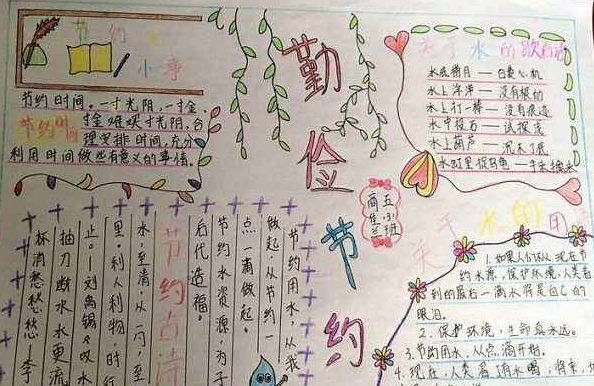 节约
小事
节约时间。一寸光阴,一寸金,
节约时间
寸金难买寸光阴,合
理安排时间,充分
利用时间做些有意义的事情。
勤俭节约
五小班
关于水的歇后语
水底捞月——白费心机
水上浮萍——没有根的
水上打一棒——没有痕迹
水中投石——试探深浅
水上葫芦——沉不了底
水缸里捉乌龟——手来擒来
节约用水,从我
做起从节约一
点一滴做起。
节约水资源,为子
后代造福。
节约古诗
水至清,从一勺,至
里。利人利物,时行
止。——刘禹锡《叹水
抽刀断水水更流
杯消愁愁愁 李
关于水的
1.如果人们不从现在节
约水源,保护环境,人类看
到的最后一滴水将是自己的
眼泪。
2.保护环境,生命最永远。
3.节约用水,从点滴开始。
4.现在,人类离滴水喝,将来,